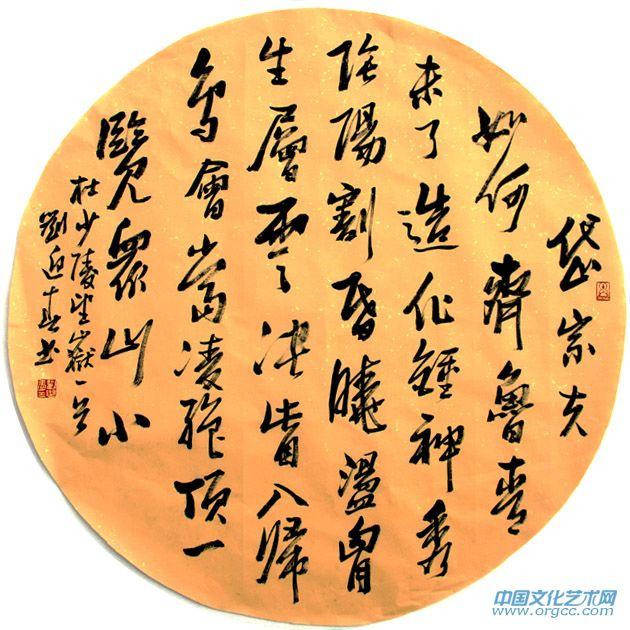 岱宗夫
如何齊魯青
未了造化鍾神秀
陰陽割昏曉盪胷
生層雲決眥入歸
鳥會當凌絕頂一
覽眾山小
杜少陵望嶽一首
劉迎春書
中国文化艺术网
www.orgcc.com